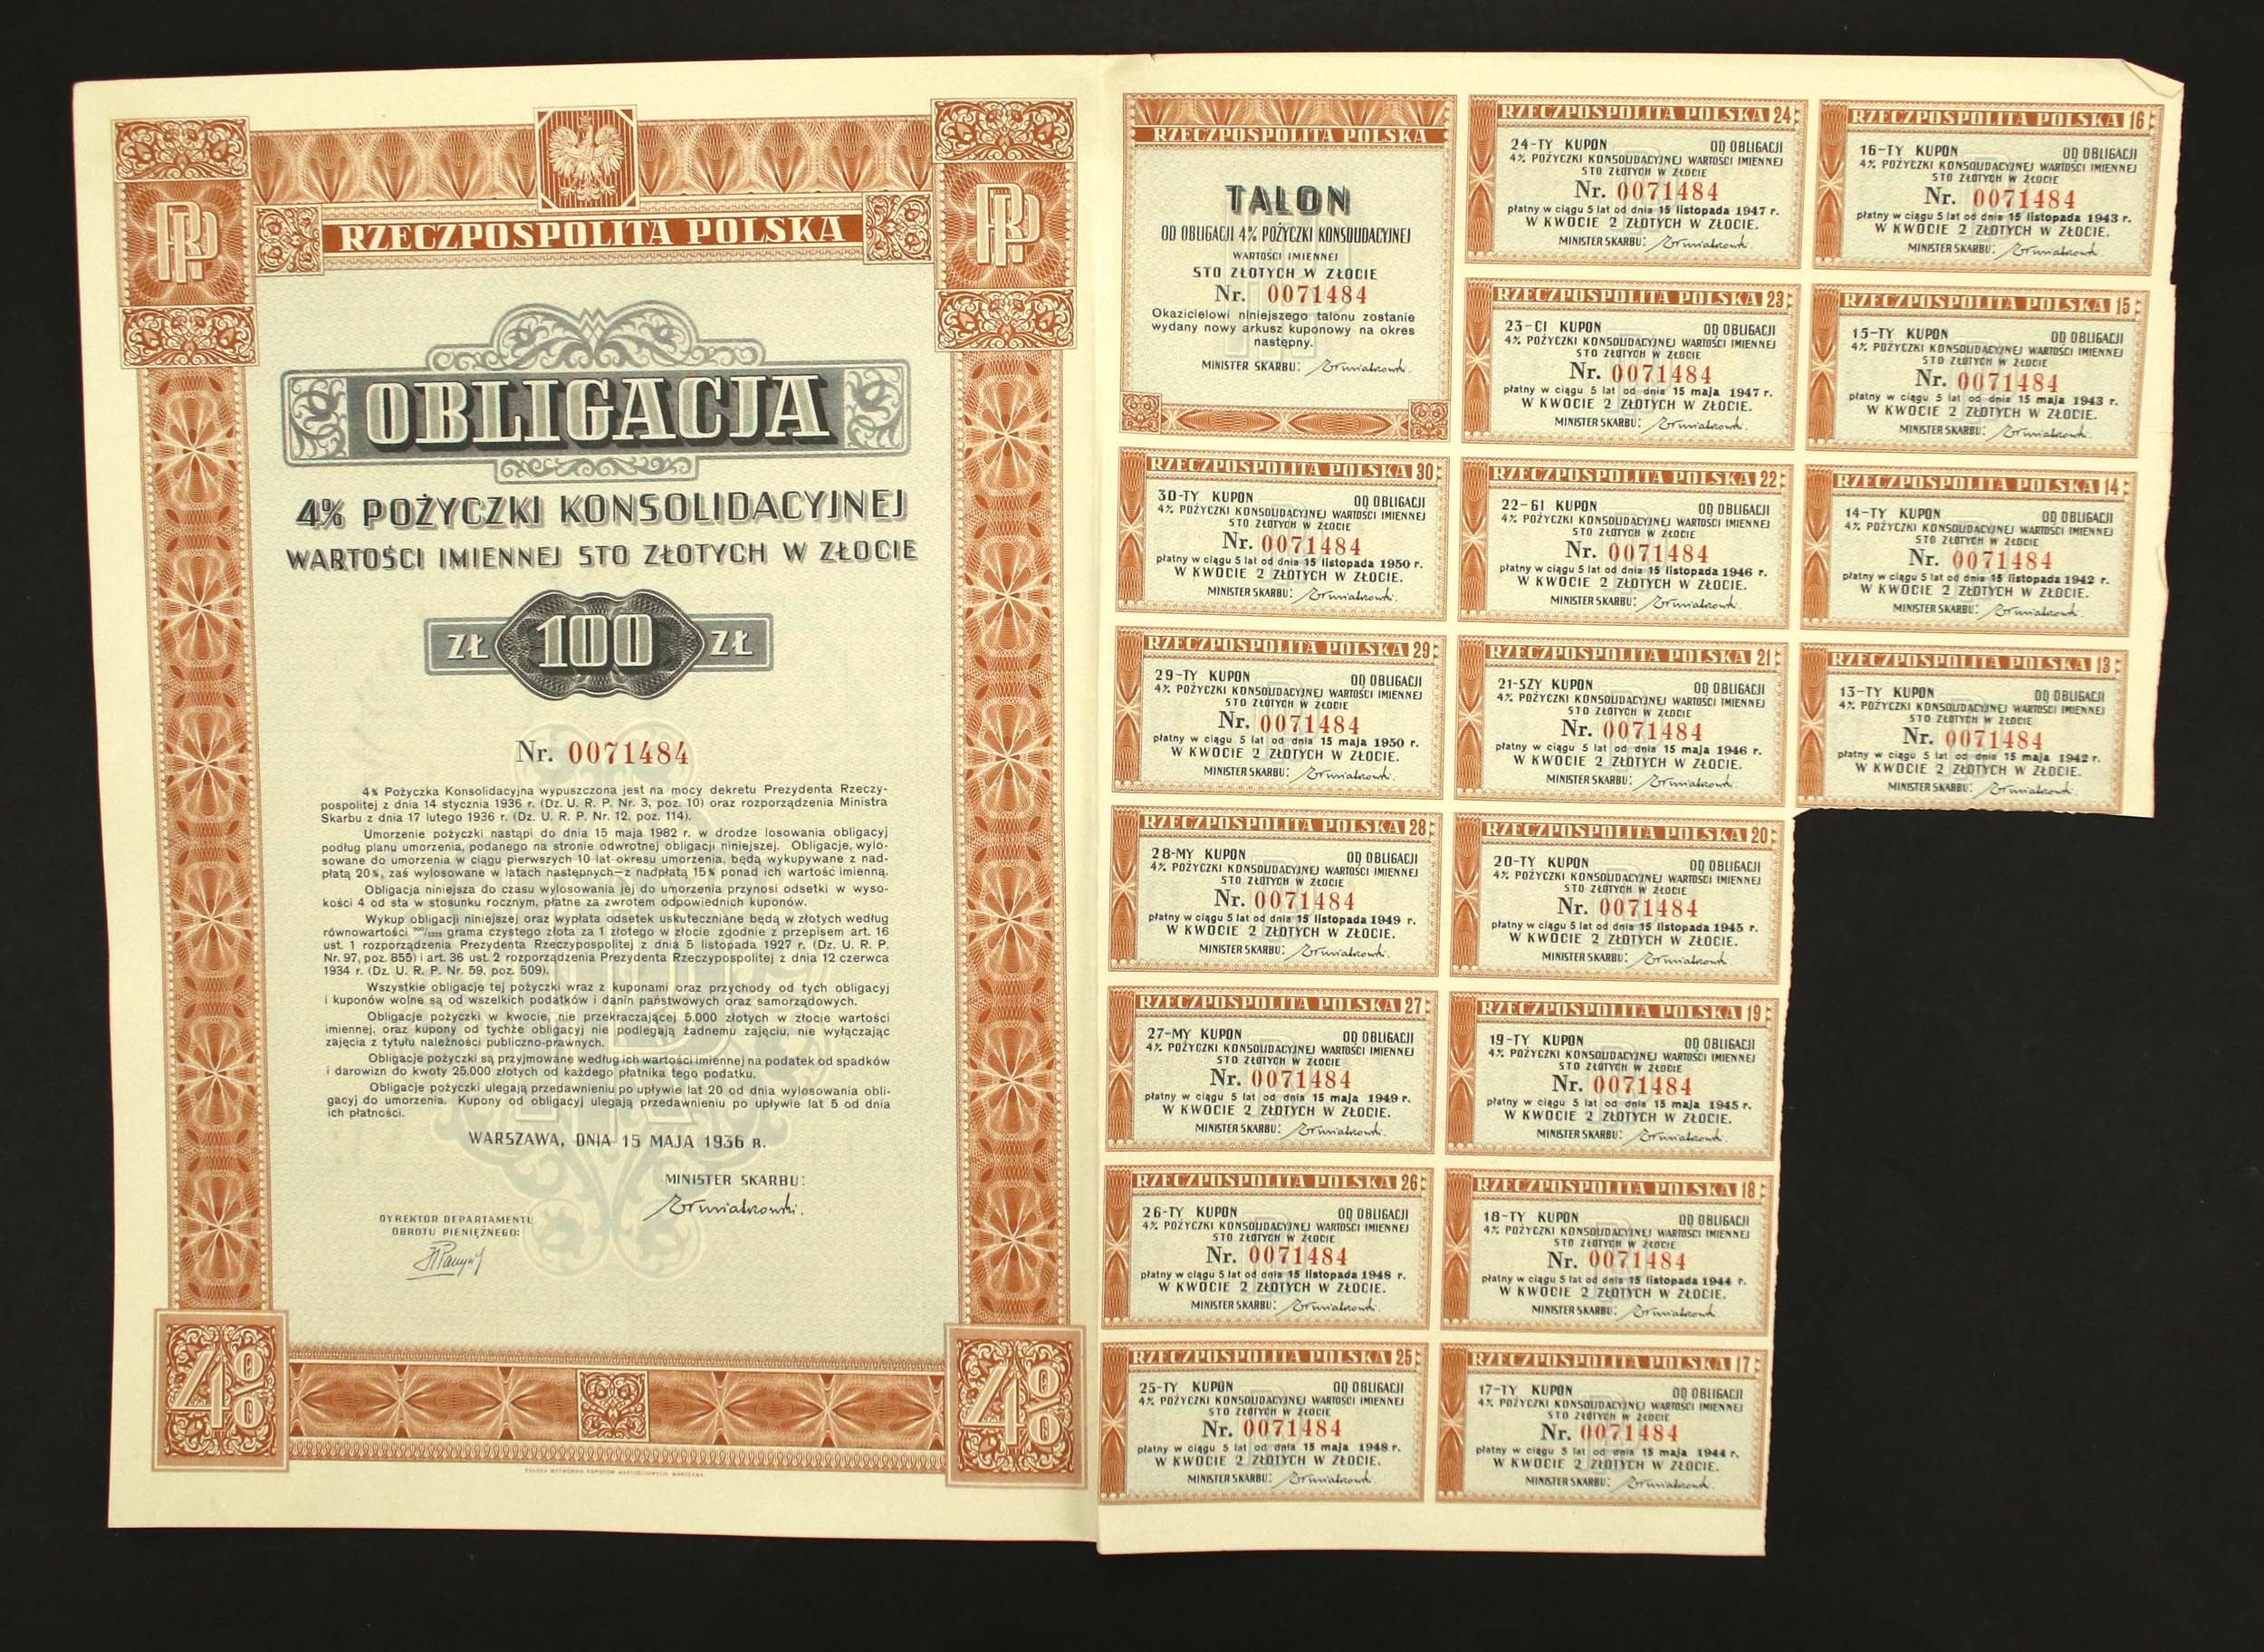 RP
RP
RZECZPOSPOLITA POLSKA
OBLIGACJA
4% POŻYCZKI KONSOLIDACYJNEJ
WARTOŚCI IMIENNEJ STO ZŁOTYCH W ZŁOCIE
ZŁ 100 ZŁ
Nr. 0071484
4% Pożyczka Konsolidacyjna wypuszczona jest na mocy dekretu Prezydenta Rzeczy-
pospolitej z dnia 14 stycznia 1936 r. (Dz. U. R. P. Nr. 3, poz. 10) oraz rozporządzenia Ministra
Skarbu z dnia 17 lutego 1936 r. (Dz. U. R. P. Nr. 12, poz. 114).
Umorzenie pożyczki nastąpi do dnia 15 maja 1982 r. w drodze losowania obligacyj
podług planu umorzenia, podanego na stronie odwrotnej obligacji niniejszej. Obligacje, wylo-
sowane do umorzenia w ciągu pierwszych 10 lat okresu umorzenia, będą wykupywane z nad-
płatą 20%, zaś wylosowane w latach następnych—z nadpłatą 15% ponad ich wartość imienną.
Obligacja niniejsza do czasu wylosowania jej do umorzenia przynosi odsetki w wyso-
kości 4 od sta w stosunku rocznym, płatne za zwrotem odpowiednich kuponów.
Wykup obligacji niniejszej oraz wypłata odsetek uskuteczniane będą w złotych według
równowartości grama czystego złota za 1 złotego w złocie zgodnie z przepisem art. 16
ust. 1 rozporządzenia Prezydenta Rzeczypospolitej z dnia 5 listopada 1927 r. (Dz. U. R. P.
Nr. 97, poz. 855) i art. 36 ust. 2 rozporządzenia Prezydenta Rzeczypospolitej z dnia 12 czerwca
1934 r. (Dz. U. R. P. Nr. 59, poz. 509).
Wszystkie obligacje tej pożyczki wraz z kuponami oraz przychody od tych obligacyj
i kuponów wolne są od wszelkich podatków i danin państwowych oraz samorządowych.
Obligacje pożyczki w kwocie, nie przekraczającej 5.000 złotych w złocie wartości
imiennej, oraz kupony od tychże obligacyj nie podlegają żadnemu zajęciu, nie wyłączając
zajęcia z tytułu należności publiczno-prawnych.
Obligacje pożyczki są przyjmowane według ich wartości imiennej na podatek od spadków
i darowizn do kwoty 25.000 złotych od każdego płatnika tego podatku.
Obligacje pożyczki ulegają przedawnieniu po upływie lat 20 od dnia wylosowania obli-
gacyj do umorzenia. Kupony od obligacyj ulegają przedawnieniu po upływie lat 5 od dnia
ich płatności.
WARSZAWA, DNIA 15 MAJA 1936 R.
MINISTER SKARBU:
DYREKTOR DEPARTAMENTU
OBROTU PIENIĘŻNEGO:
4%
4%
POLSKA WYTWÓRNIA PAPIERÓW WARTOŚCIOWYCH, WARSZAWA
RZECZPOSPOLITA POLSKA
TALON
OD OBLIGACJI 4% POŻYCZKI KONSOLIDACYJNEJ
WARTOŚCI IMIENNEJ
STO ZŁOTYCH W ZŁOCIE
Nr. 0071484
Okazicielowi niniejszego talonu zostanie
wydany nowy arkusz kuponowy na okres
następny.
MINISTER SKARBU:
RZECZPOSPOLITA POLSKA 30
30-TY KUPON OD OBLIGACJI
4% POŻYCZKI KONSOLIDACYJNEJ WARTOŚCI IMIENNEJ
STO ZŁOTYCH W ZŁOCIE
Nr. 0071484
płatny w ciągu 5 lat od dnia 15 listopada 1950 r.
W KWOCIE 2 ZŁOTYCH W ZŁOCIE.
MINISTER SKARBU:
RZECZPOSPOLITA POLSKA 29
29-TY KUPON OD OBLIGACJI
4% POŻYCZKI KONSOLIDACYJNEJ WARTOŚCI IMIENNEJ
STO ZŁOTYCH W ZŁOCIE
Nr. 0071484
płatny w ciągu 5 lat od dnia 15 maja 1950 r.
W KWOCIE 2 ZŁOTYCH W ZŁOCIE.
MINISTER SKARBU:
RZECZPOSPOLITA POLSKA 28
28-MY KUPON OD OBLIGACJI
4% POŻYCZKI KONSOLIDACYJNEJ WARTOŚCI IMIENNEJ
STO ZŁOTYCH W ZŁOCIE
Nr. 0071484
płatny w ciągu 5 lat od dnia 15 listopada 1949 r.
W KWOCIE 2 ZŁOTYCH W ZŁOCIE.
MINISTER SKARBU:
RZECZPOSPOLITA POLSKA 27
27-MY KUPON OD OBLIGACJI
4% POŻYCZKI KONSOLIDACYJNEJ WARTOŚCI IMIENNEJ
STO ZŁOTYCH W ZŁOCIE
Nr. 0071484
płatny w ciągu 5 lat od dnia 15 maja 1949 r.
W KWOCIE 2 ZŁOTYCH W ZŁOCIE.
MINISTER SKARBU:
RZECZPOSPOLITA POLSKA 26
26-TY KUPON OD OBLIGACJI
4% POŻYCZKI KONSOLIDACYJNEJ WARTOŚCI IMIENNEJ
STO ZŁOTYCH W ZŁOCIE
Nr. 0071484
płatny w ciągu 5 lat od dnia 15 listopada 1948 r.
W KWOCIE 2 ZŁOTYCH W ZŁOCIE.
MINISTER SKARBU:
RZECZPOSPOLITA POLSKA 25
25-TY KUPON OD OBLIGACJI
4% POŻYCZKI KONSOLIDACYJNEJ WARTOŚCI IMIENNEJ
STO ZŁOTYCH W ZŁOCIE
Nr. 0071484
płatny w ciągu 5 lat od dnia 15 maja 1948 r.
W KWOCIE 2 ZŁOTYCH W ZŁOCIE.
MINISTER SKARBU:
RZECZPOSPOLITA POLSKA 24
24-TY KUPON OD OBLIGACJI
4% POŻYCZKI KONSOLIDACYJNEJ WARTOŚCI IMIENNEJ
STO ZŁOTYCH W ZŁOCIE
Nr. 0071484
płatny w ciągu 5 lat od dnia 15 listopada 1947 r.
W KWOCIE 2 ZŁOTYCH W ZŁOCIE.
MINISTER SKARBU:
RZECZPOSPOLITA POLSKA 23
23-CI KUPON OD OBLIGACJI
4% POŻYCZKI KONSOLIDACYJNEJ WARTOŚCI IMIENNEJ
STO ZŁOTYCH W ZŁOCIE
Nr. 0071484
płatny w ciągu 5 lat od dnia 15 maja 1947 r.
W KWOCIE 2 ZŁOTYCH W ZŁOCIE.
MINISTER SKARBU:
RZECZPOSPOLITA POLSKA 22
22-GI KUPON OD OBLIGACJI
4% POŻYCZKI KONSOLIDACYJNEJ WARTOŚCI IMIENNEJ
STO ZŁOTYCH W ZŁOCIE
Nr. 0071484
płatny w ciągu 5 lat od dnia 15 listopada 1946 r.
W KWOCIE 2 ZŁOTYCH W ZŁOCIE.
MINISTER SKARBU:
RZECZPOSPOLITA POLSKA 21
21-SZY KUPON OD OBLIGACJI
4% POŻYCZKI KONSOLIDACYJNEJ WARTOŚCI IMIENNEJ
STO ZŁOTYCH W ZŁOCIE
Nr. 0071484
płatny w ciągu 5 lat od dnia 15 maja 1946 r.
W KWOCIE 2 ZŁOTYCH W ZŁOCIE.
MINISTER SKARBU:
RZECZPOSPOLITA POLSKA 20
20-TY KUPON OD OBLIGACJI
4% POŻYCZKI KONSOLIDACYJNEJ WARTOŚCI IMIENNEJ
STO ZŁOTYCH W ZŁOCIE
Nr. 0071484
płatny w ciągu 5 lat od dnia 15 listopada 1945 r.
W KWOCIE 2 ZŁOTYCH W ZŁOCIE.
MINISTER SKARBU:
RZECZPOSPOLITA POLSKA 19
19-TY KUPON OD OBLIGACJI
4% POŻYCZKI KONSOLIDACYJNEJ WARTOŚCI IMIENNEJ
STO ZŁOTYCH W ZŁOCIE
Nr. 0071484
płatny w ciągu 5 lat od dnia 15 maja 1945 r.
W KWOCIE 2 ZŁOTYCH W ZŁOCIE.
MINISTER SKARBU:
RZECZPOSPOLITA POLSKA 18
18-TY KUPON OD OBLIGACJI
4% POŻYCZKI KONSOLIDACYJNEJ WARTOŚCI IMIENNEJ
STO ZŁOTYCH W ZŁOCIE
Nr. 0071484
płatny w ciągu 5 lat od dnia 15 listopada 1944 r.
W KWOCIE 2 ZŁOTYCH W ZŁOCIE.
MINISTER SKARBU:
RZECZPOSPOLITA POLSKA 17
17-TY KUPON OD OBLIGACJI
4% POŻYCZKI KONSOLIDACYJNEJ WARTOŚCI IMIENNEJ
STO ZŁOTYCH W ZŁOCIE
Nr. 0071484
płatny w ciągu 5 lat od dnia 15 maja 1944 r.
W KWOCIE 2 ZŁOTYCH W ZŁOCIE.
MINISTER SKARBU:
RZECZPOSPOLITA POLSKA 16
16-TY KUPON OD OBLIGACJI
4% POŻYCZKI KONSOLIDACYJNEJ WARTOŚCI IMIENNEJ
STO ZŁOTYCH W ZŁOCIE
Nr. 0071484
płatny w ciągu 5 lat od dnia 15 listopada 1943 r.
W KWOCIE 2 ZŁOTYCH W ZŁOCIE.
MINISTER SKARBU:
RZECZPOSPOLITA POLSKA 15
15-TY KUPON OD OBLIGACJI
4% POŻYCZKI KONSOLIDACYJNEJ WARTOŚCI IMIENNEJ
STO ZŁOTYCH W ZŁOCIE
Nr. 0071484
płatny w ciągu 5 lat od dnia 15 maja 1943 r.
W KWOCIE 2 ZŁOTYCH W ZŁOCIE.
MINISTER SKARBU:
RZECZPOSPOLITA POLSKA 14
14-TY KUPON OD OBLIGACJI
4% POŻYCZKI KONSOLIDACYJNEJ WARTOŚCI IMIENNEJ
STO ZŁOTYCH W ZŁOCIE
Nr. 0071484
płatny w ciągu 5 lat od dnia 15 listopada 1942 r.
W KWOCIE 2 ZŁOTYCH W ZŁOCIE.
MINISTER SKARBU:
RZECZPOSPOLITA POLSKA 13
13-TY KUPON OD OBLIGACJI
4% POŻYCZKI KONSOLIDACYJNEJ WARTOŚCI IMIENNEJ
STO ZŁOTYCH W ZŁOCIE
Nr. 0071484
płatny w ciągu 5 lat od dnia 15 maja 1942 r.
W KWOCIE 2 ZŁOTYCH W ZŁOCIE.
MINISTER SKARBU: